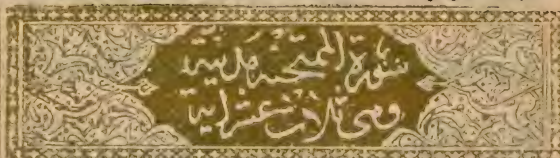 سورة الممتحنة مدنية
وهي ثلاث عشر اية